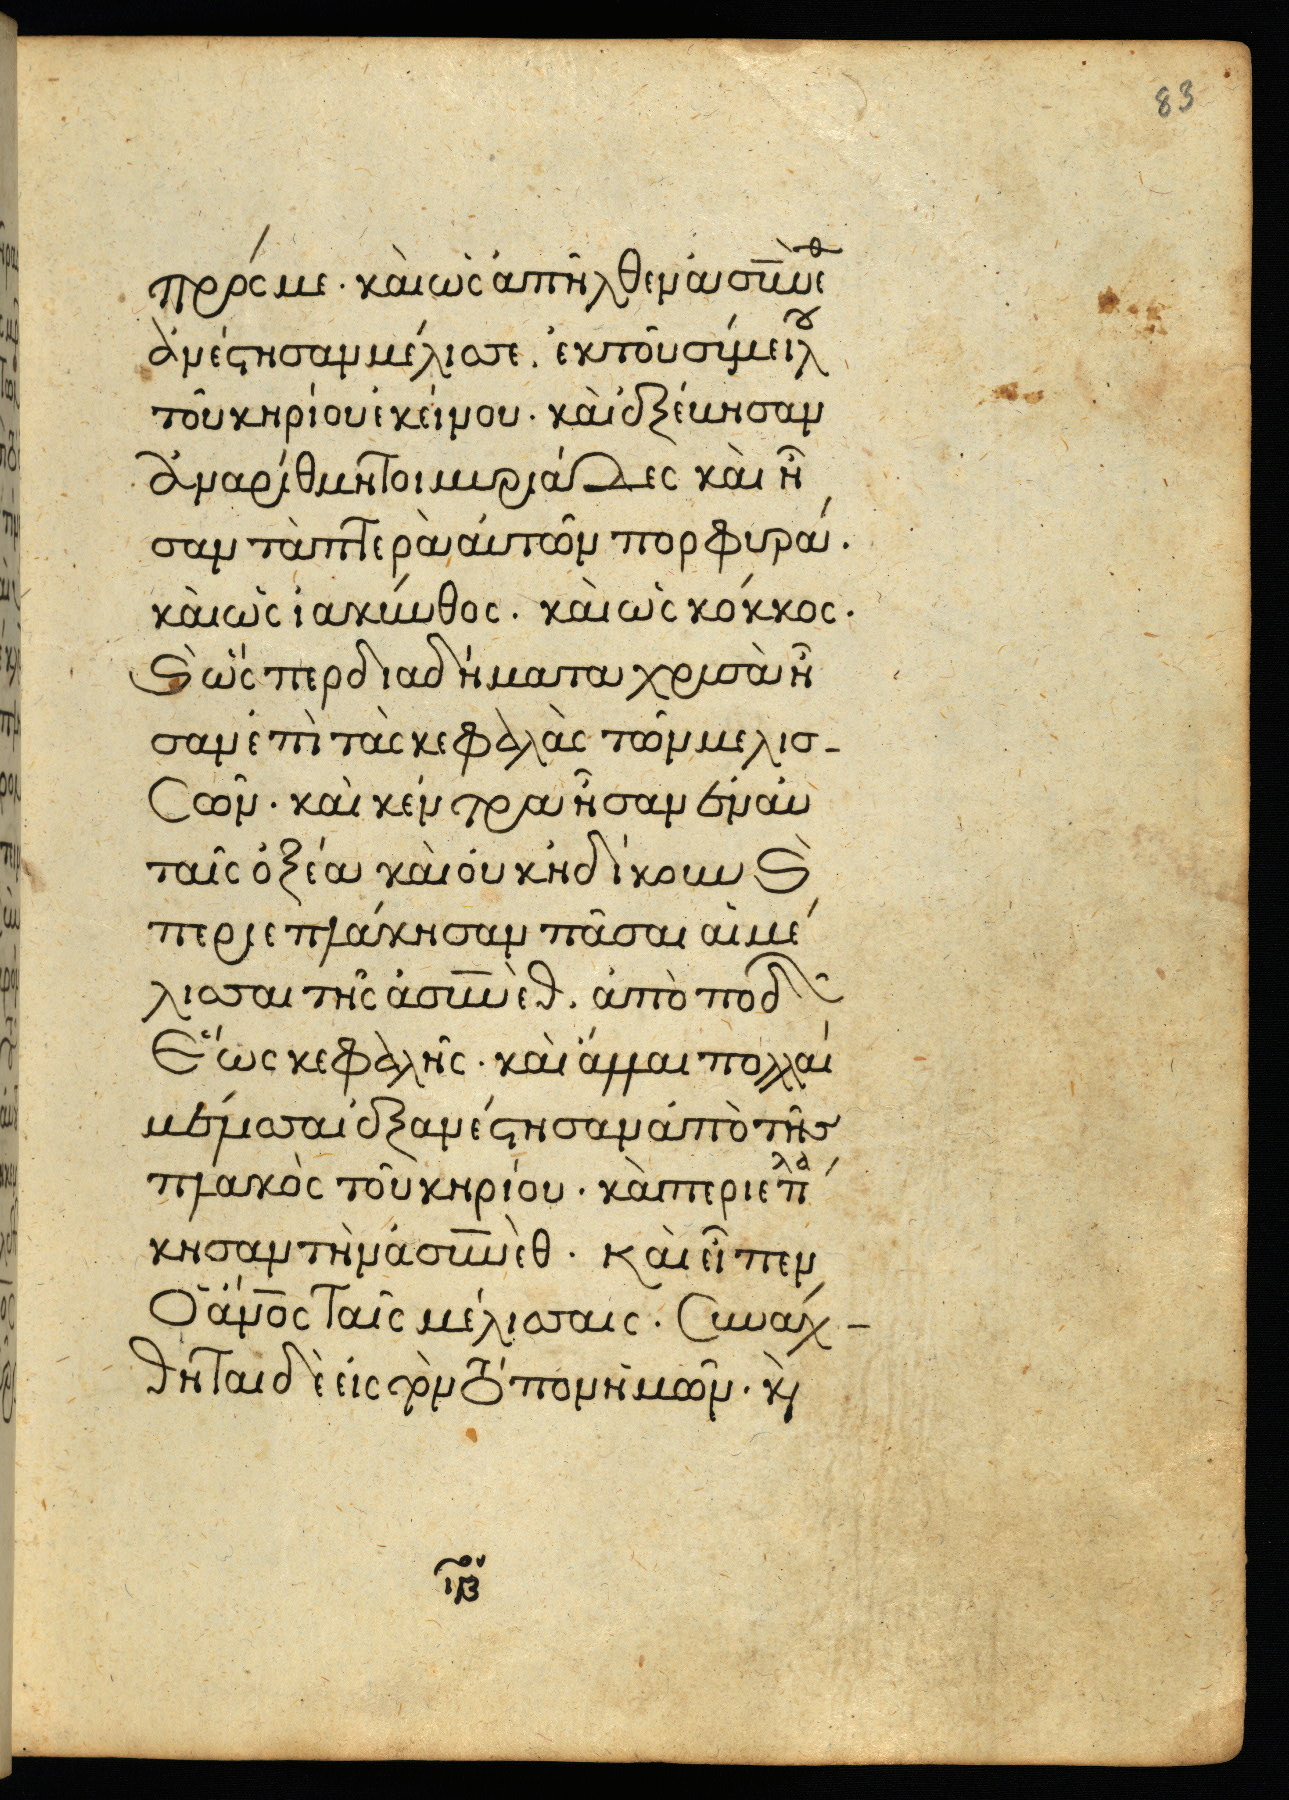 83
πρός με· καὶ ὡς ἀπῆλθεν ἀσινὲθ
ἀνέστησαν μέλισσε. ἐκ τοῦ σίμβλου
τοῦ κηρίου ἐκείνου· καὶ ἐξέκησαν
ἀναρίθμητοι μυριάδες καὶ ἦ
σαν τὰ πτερὰ αὐτῶν πορφυρά·
καὶ ὡς ἰακίνθος· καὶ ὡς κόκκος·
καὶ ὥς περ διαδήματα χρισὰ ἦ
σαν ἐπὶ τὰς κεφαλὰς τῶν μελισ-
σῶν· καὶ κέντρα ἦσαν ἐν αὐ
ταῖς ὀξέα καὶ οὐκ ἠδίκουν καὶ
περιεπλάκησαν πᾶσαι αἱ μέ
λισσαι τῆς ἀσινὲθ. ἀπὸ ποδῶν
ἕως κεφαλῆς· καὶ ἄλλαι πολλαί
μέλισσαι ἐξανέστησαν ἀπὸ τῆς
πλακὸς τοῦ κηρίου· καὶ περιεπλά
κησαν τὴν ἀσινὲθ· καὶ εἶπεν
ὁ ἄνος ταῖς μέλισσαις· συναχ-
θῆται δὲ εἰς τὸν τόπον ἡμῶν· καὶ
ιβον